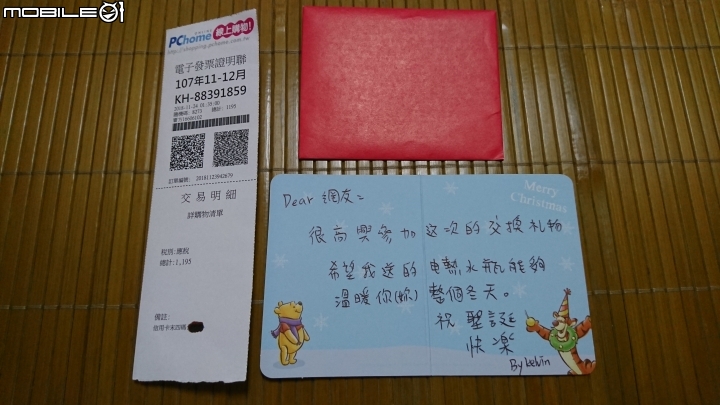 MOBILE01
PChome 線上購物!
http://shopping.pchome.com.tw
電子發票證明聯
107年11-12月
KH-88391859
總計: 1195
訂單編號: 20181123942679
交易明細
詳購物清單
稅別:應稅
總計:1,195
備註:
信用卡末四碼
Merry Christmas
Dear 網友:
很高興參加這次的交換礼物
希望我送的電熱水瓶能夠
溫暖你(妳)整個冬天。
祝聖誕
快樂
By kelvin